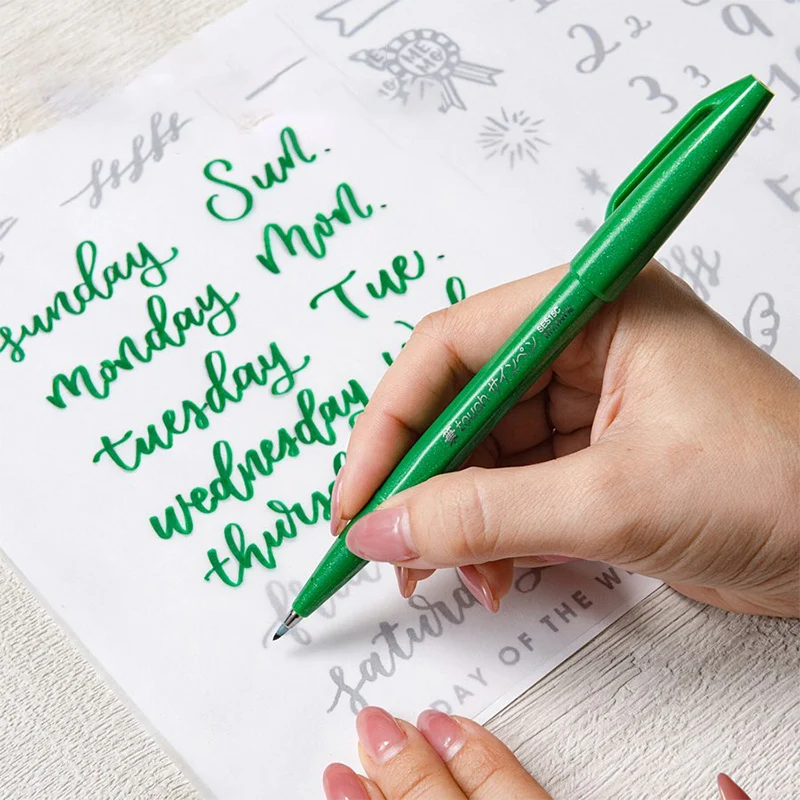 Sun.
sunday
Mon.
monday
Tue.
tuesday
wednesday
thurs
saturd
DAY OF THE W
筆touch サインペン SES15C
ME
2
2
3
3
4
9